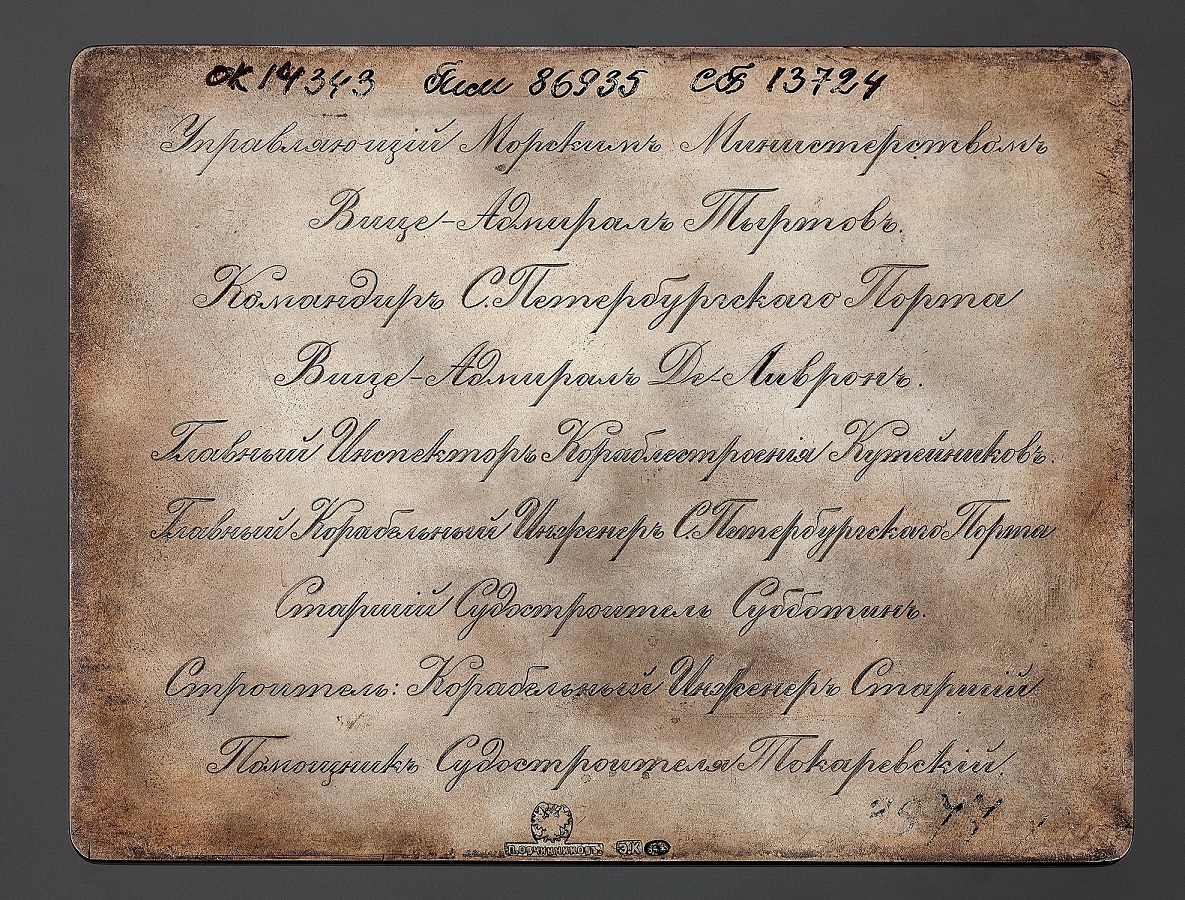 ОК 14343 Пим 86935 СБ 13724
Управляющій Морскимъ Министерствомъ
Вице-Адмиралъ Тыртовъ.
Командиръ С.Петербургскаго Порта
Вице-Адмиралъ Де-Ливронъ.
Главный Инспекторъ Кораблестроенія Кутейниковъ.
Главный Корабельный Инженеръ С.Петербургскаго Порта
Старшій Судостроитель Субботинъ.
Строитель: Корабельный Инженеръ Старшій
Помощникъ Судостроителя Токаревскій.
П.ОВЧИННИКОВЪ ЭК